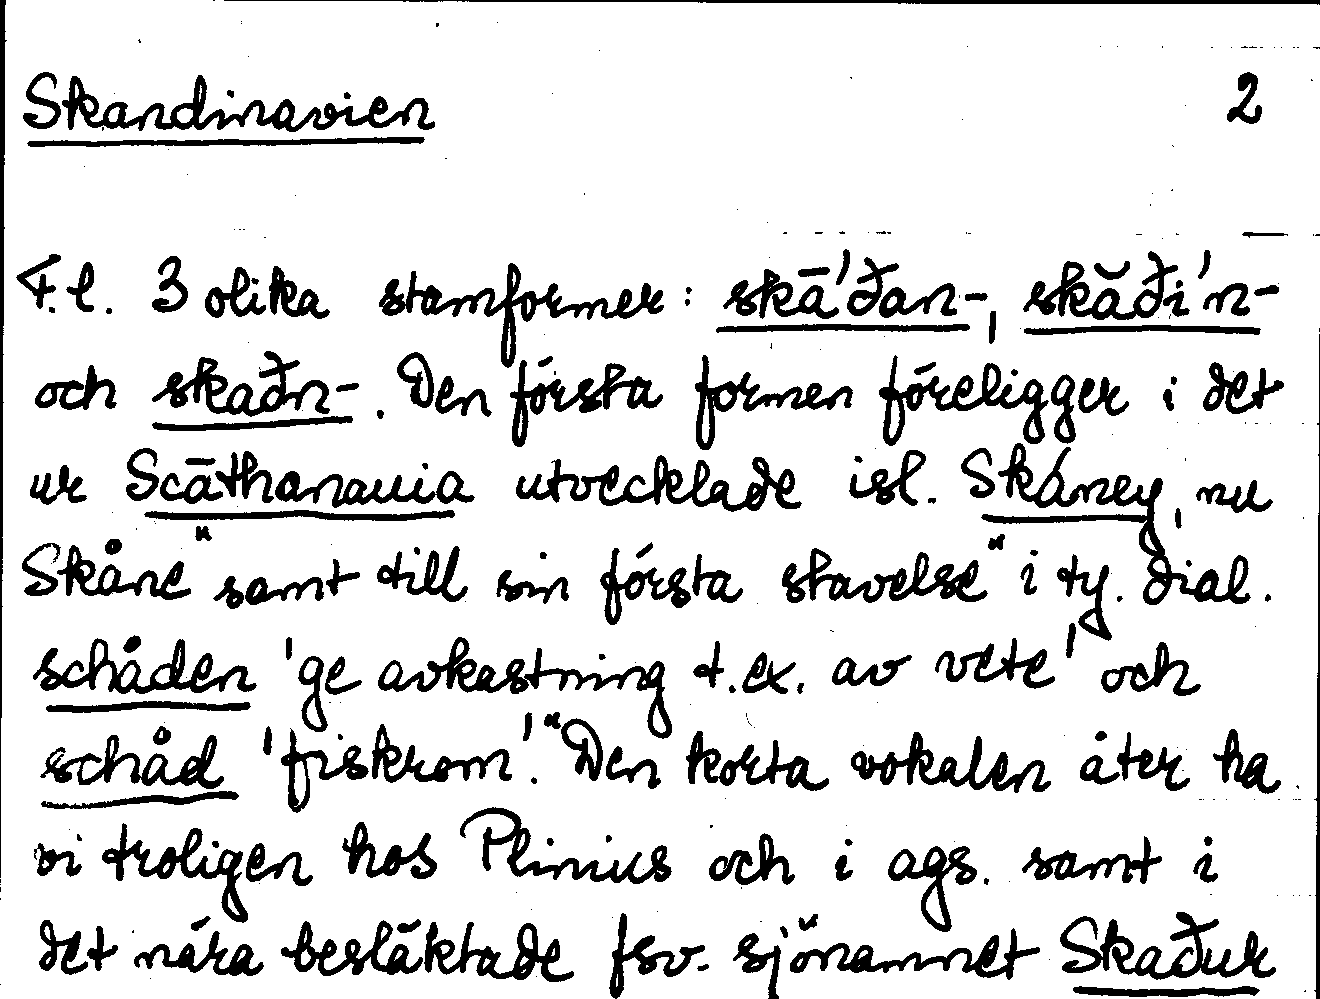 Skandinavien 2
F.l. 3 olika stamformer: skā'ðan-, skăði'n-
och skaðn-. Den första formen föreligger i det
ur Scāthanauia utvecklade isl. Skáney, nu
Skåne" samt till sin första stavelse" i ty. dial.
schåden 'ge avkastning t.ex. av vete' och
schåd 'fiskrom'." Den korta vokalen åter ha
vi troligen hos Plinius och i ags. samt i
det nära besläktade fsv. sjönamnet Skaður